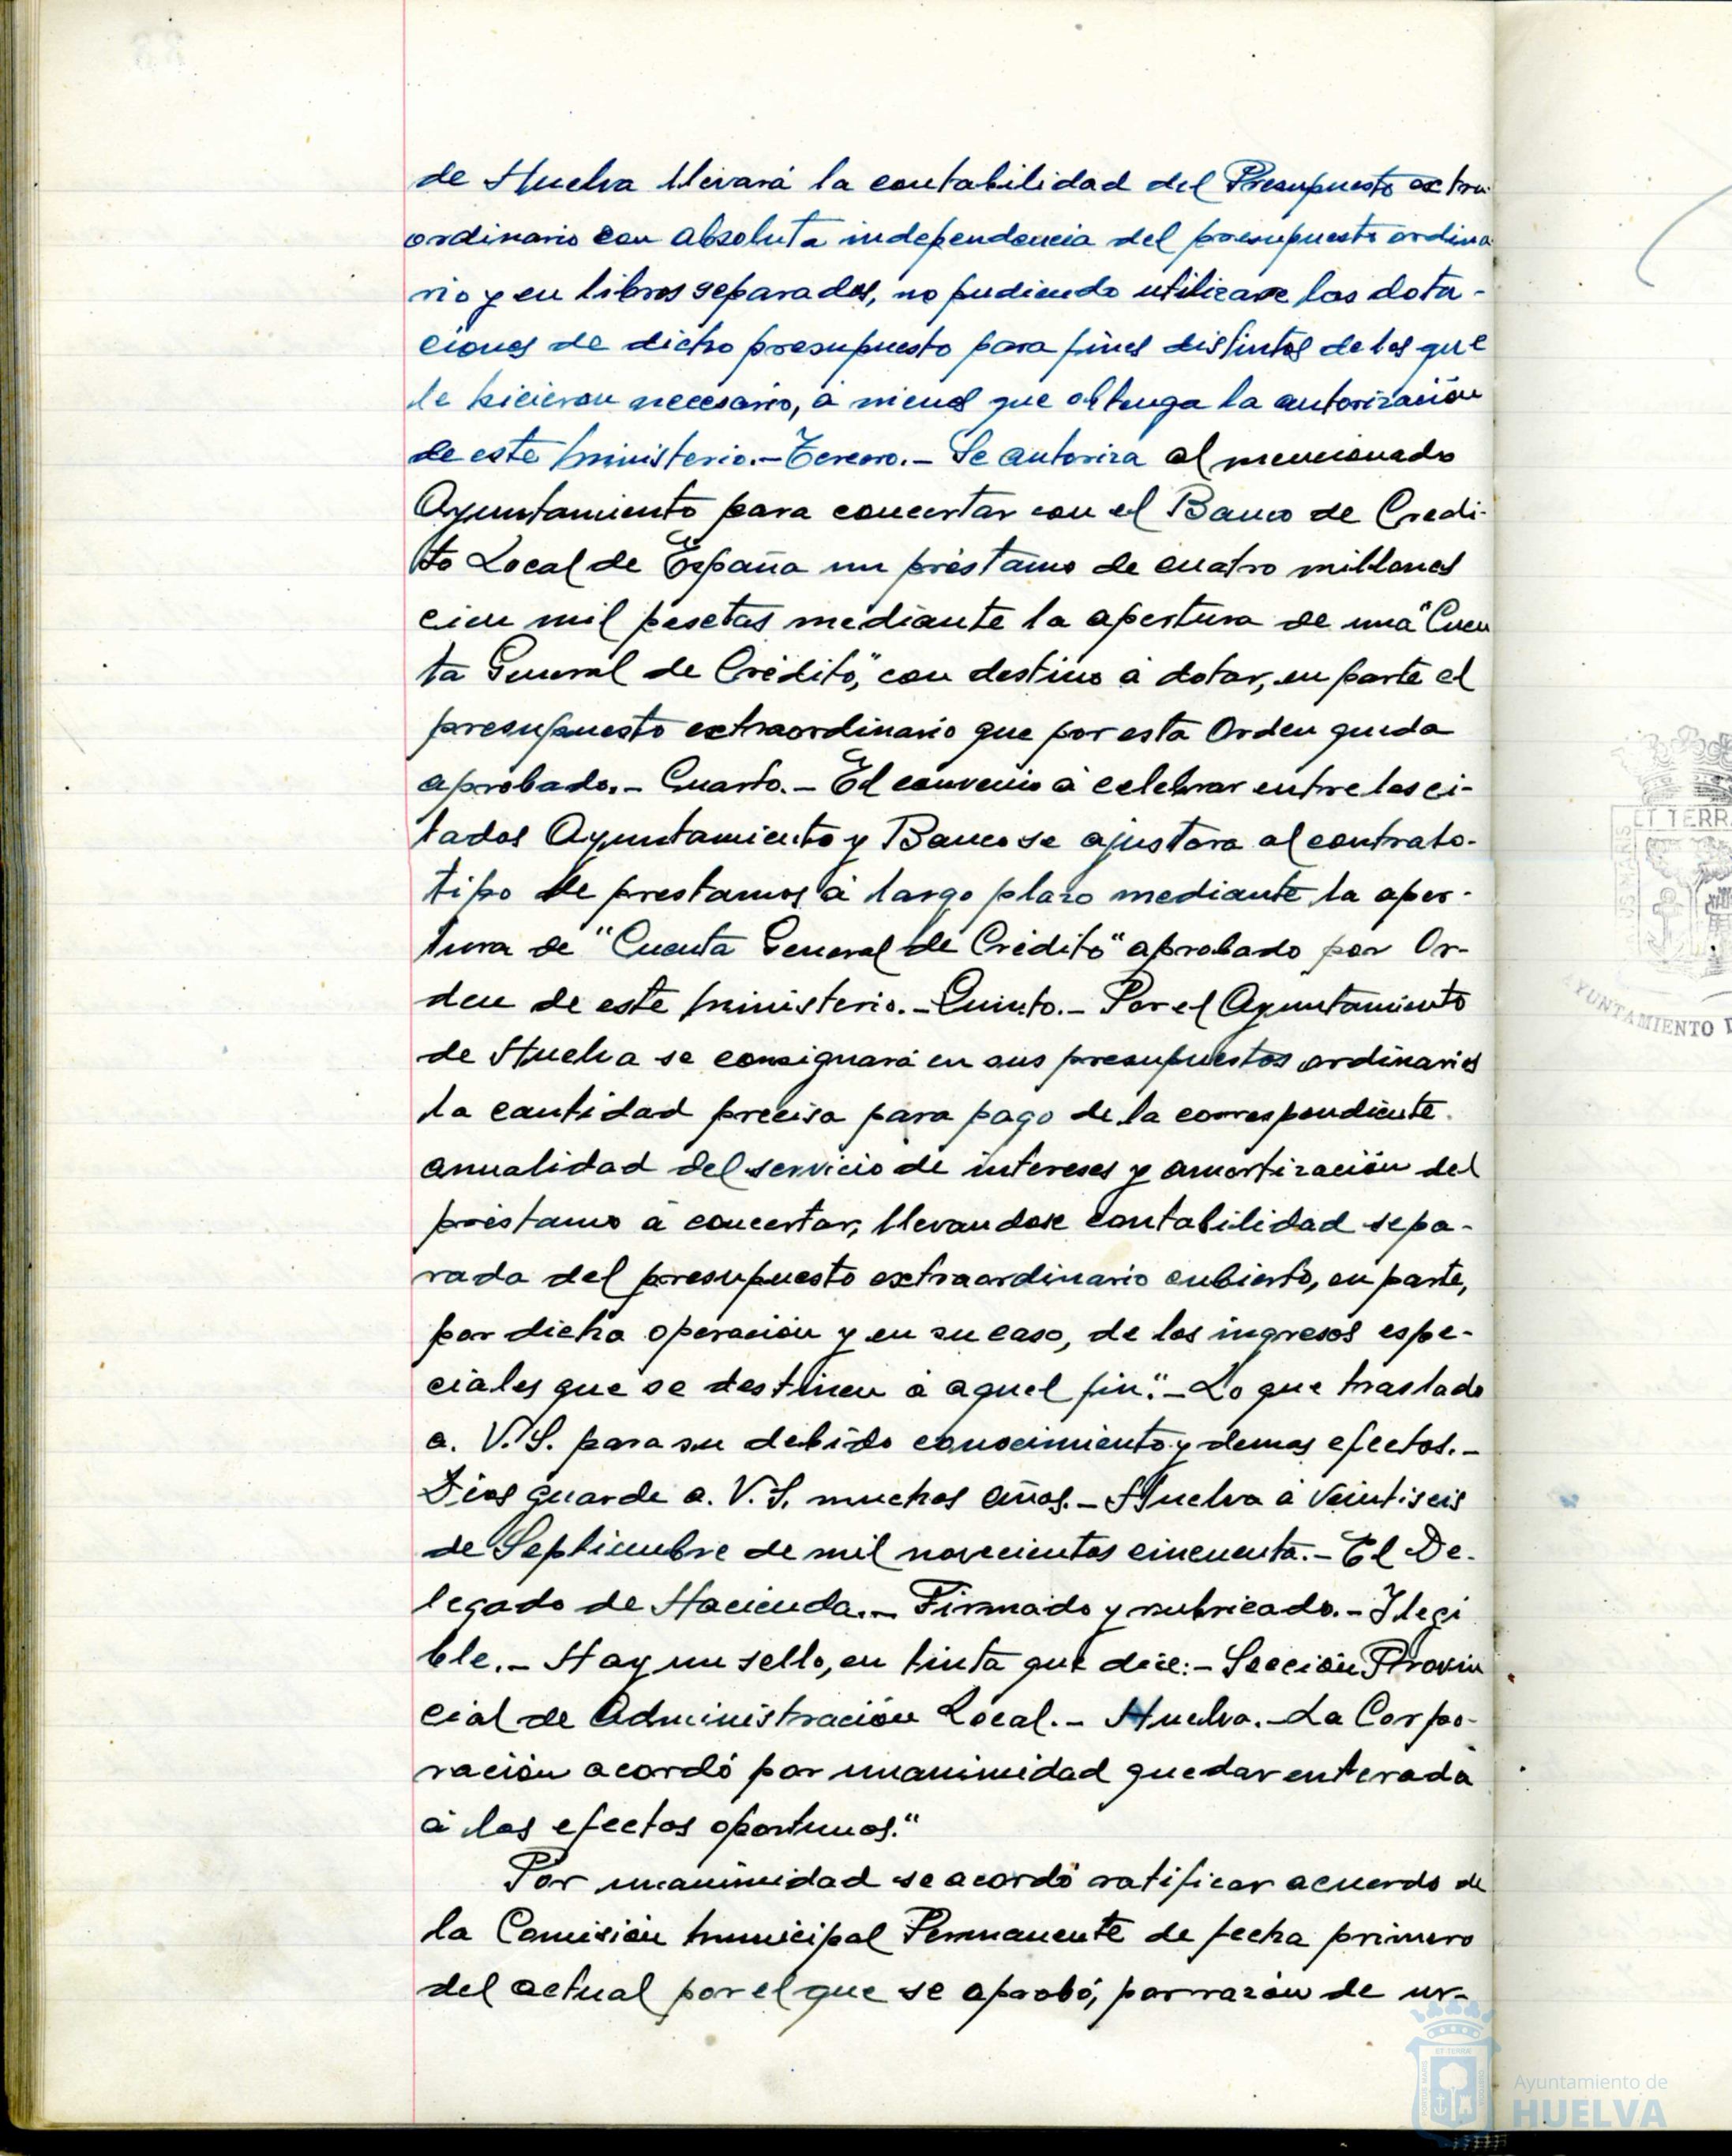 de Huelva llevará la contabilidad del Presupuesto extra
ordinario con absoluta independencia del presupuesto ordina
rio y en libros separados, no pudiendo utilizarse las dota-
ciones de dicho presupuesto para fines distintos de los que
le hicieron necesario, á menos que obtenga la autorización
de este Ministerio.- Tercero.- Se autoriza al mencionado
Ayuntamiento para concertar con el Banco de Credi-
to Local de España un préstamo de cuatro millones
cien mil pesetas mediante la apertura de una "Cuen
ta General de Crédito", con destino á dotar, en parte el
presupuesto extraordinario que por esta Orden queda
aprobado.- Cuarto.- El convenio á celebrar entre los ci-
tados Ayuntamiento y Banco se ajustara al contrato-
tipo de prestamos á largo plazo mediante la aper-
tura de "Cuenta General de Crédito" aprobado por Or-
den de este Ministerio.- Quinto.- Por el Ayuntamiento
de Huelva se consignará en sus presupuestos ordinarios
la cantidad precisa para pago de la correspondiente
anualidad del servicio de intereses y amortización del
préstamo á concertar, llevandose contabilidad sepa-
rada del presupuesto extraordinario cubierto, en parte,
por dicha operación y en su caso, de los ingresos espe-
ciales que se destinen á aquel fin".- Lo que traslado
a. V.S. para su debido conocimiento y demas efectos.-
Dios guarde a. V.S. muchos años.- Huelva á Veintiseis
de Septiembre de mil novecientos cincuenta.- El De-
legado de Hacienda.- Firmado y rubricado.- Ilegi
ble.- Hay un sello, en tinta que dice:- Sección Provin
cial de Administración Local.- Huelva.- La Corpo-
ración acordó por unanimidad quedar enterada
á los efectos oportunos."
Por unanimidad se acordó ratificar acuerdo de
la Comisión Municipal Permanente de fecha primero
del actual por el que se aprobó, por razón de ur-
ET TERRA
AYUNTAMIENTO D
Ayuntamiento de
HUELVA